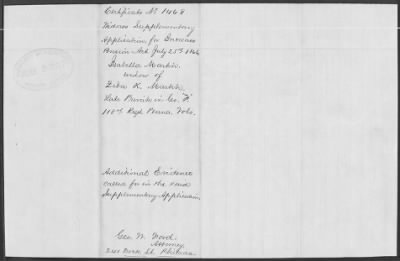 Certificate No 1468
Widows Supplementary
Application for Increase
Pension Act July 25th 1866
Isabella Martin
widow of
K. Martin
late Private in Co. F
118th Regt Penna. Vols.
Additional Evidence
called for in the said
Supplementary Application
Geo. W. Ford
Attorney
Dock St. Philada